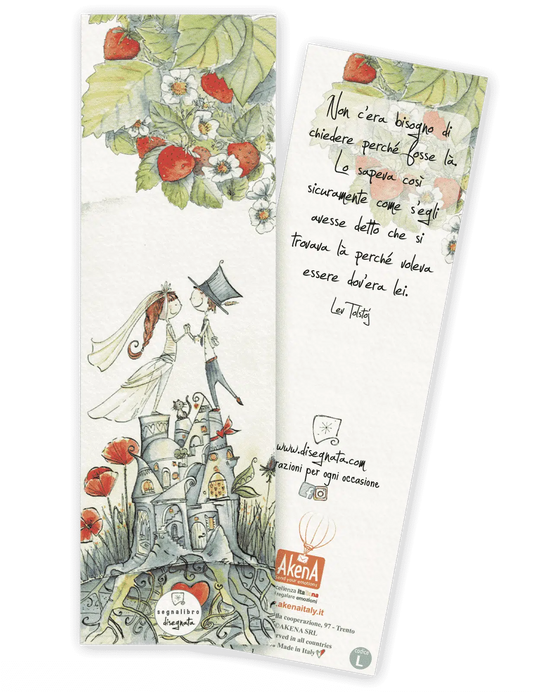 segnalibro
disegnata
Non c'era bisogno di
chiedere perché fosse là.
Lo sapeva così
sicuramente come s'egli
avesse detto che si
trovava là perché voleva
essere dov'era lei.
Lev Tolstój
www.disegnata.com
razioni per ogni occasione
AkenA
send your emotions
cellenza italiana
regalare emozioni
.akenaitaly.it
la cooperazione, 97 - Trento
AKENA SRL
erved in all countries
Made in Italy
codice
L